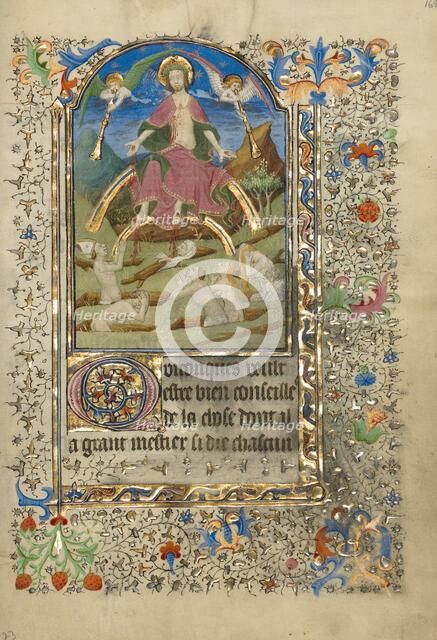 Heritage
Heritage
Heritage
Quiconques veult
estre bien conseille
de la chose dont il
a grant mestier si die chascun